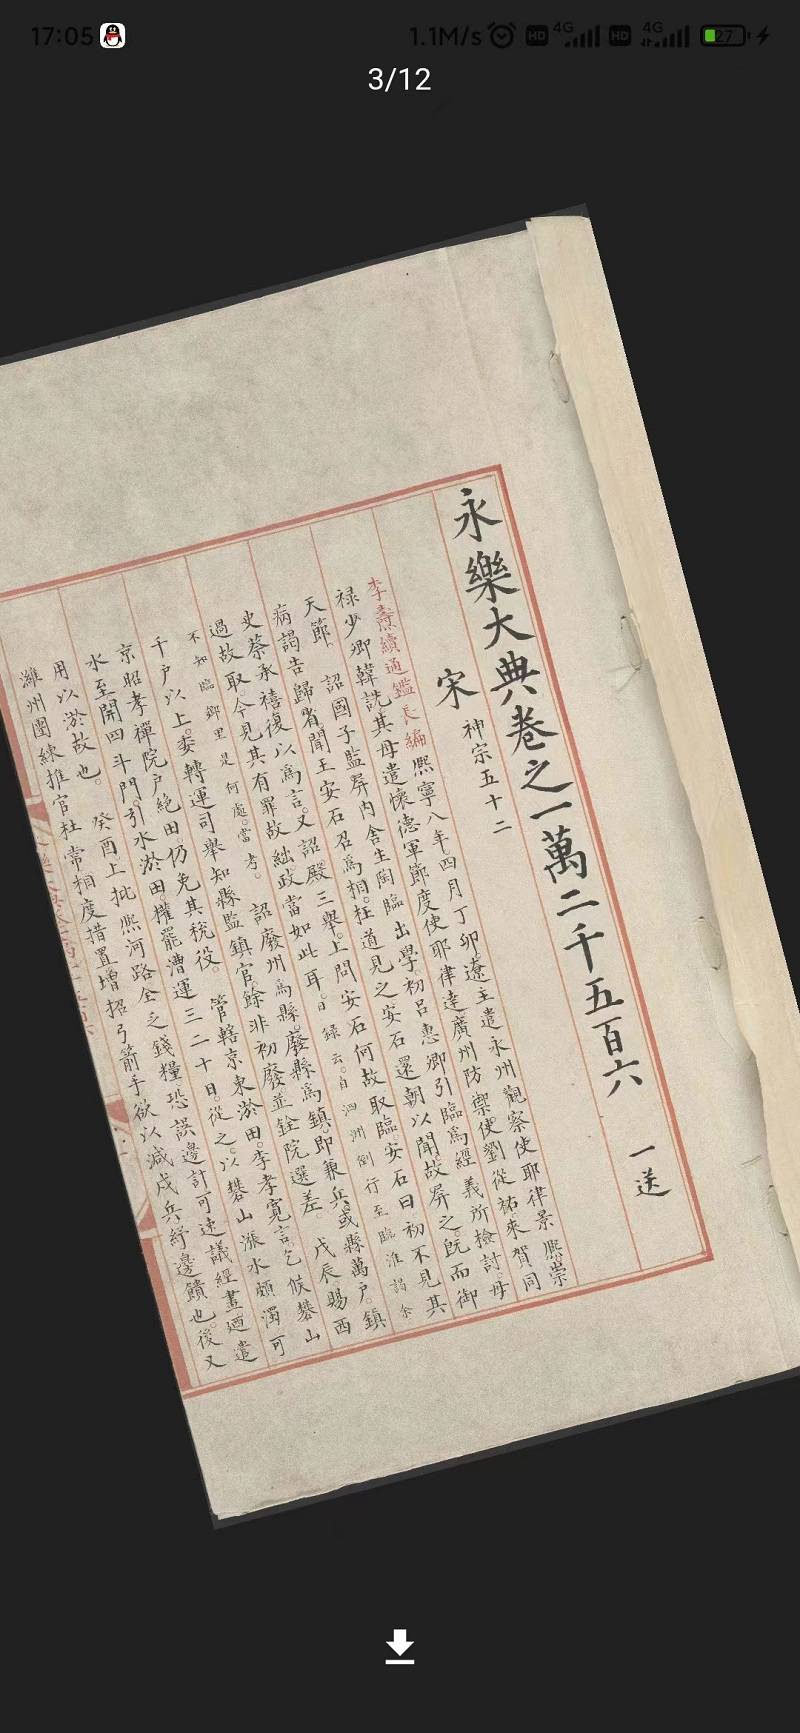 17:05
1.1M/s HD 4G HD 4G 27
3/12
永樂大典卷之一萬二千五百六 一送
宋 神宗五十二
李燾續通鑑長編 熙寧八年。四月丁卯。遼主遣永州觀察使耶律景熙。崇
祿少卿韓詵。其母遣懷德軍節度使耶律達。廣州防禦使劉從祐。來賀同
天節。 詔國子監屏内舍生陶臨出學。初吕惠卿引臨爲經義所檢討。母
病謁告歸省。聞王安石召爲相。枉道見之。安石還朝以聞。故屏之。既而御
史蔡承禧復以爲言。又詔殿三舉。上問安石何故取臨。安石曰初不見其
過故取。今見其有罪故絀。政當如此耳。日錄云。自泗洲倒行至臨淮謁余
不知臨鄉里是何處。當考。 詔廢州爲縣。廢縣爲鎮。即兼兵或縣萬户。鎮
千户以上。委轉運司舉知縣監鎮官。餘非初廢。並銓院選差。 戊辰。賜西
京昭孝禪院户絕田。仍免其稅役。 管轄京東淤田。李孝寬言。乞候礬山
水至。開四斗門。引水淤田。權罷漕運三二十日。從之。以礬山漲水頗濁。可
用以淤故也。 癸酉上批。熙河路全乏錢糧。恐誤邊計。可速議經畫。廼遣
濰州團練推官杜常相度措置。增招弓箭手。欲以減戍兵。紓邊饋也。後又